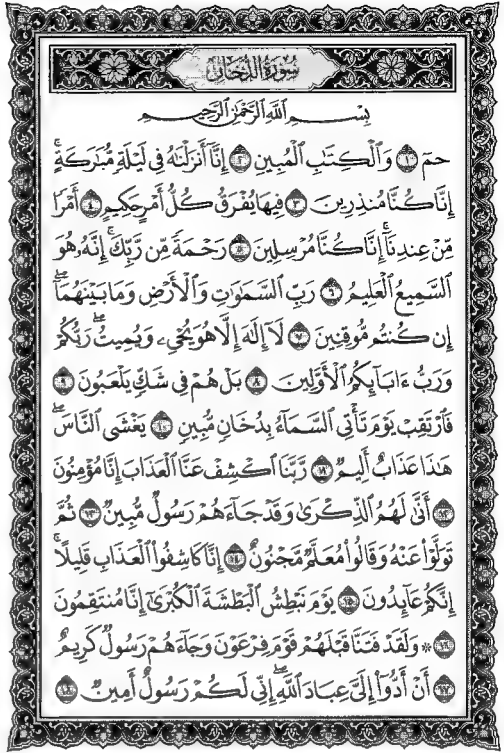 سُورَةُ الدُّخَانِ
بِسْمِ اللَّهِ الرَّحْمَٰنِ الرَّحِيمِ
حمٓ ١ وَالْكِتَابِ الْمُبِينِ ٢ إِنَّا أَنزَلْنَاهُ فِي لَيْلَةٍ مُّبَارَكَةٍ ۚ
إِنَّا كُنَّا مُنذِرِينَ ٣ فِيهَا يُفْرَقُ كُلُّ أَمْرٍ حَكِيمٍ ٤ أَمْرًا
مِّنْ عِندِنَا ۚ إِنَّا كُنَّا مُرْسِلِينَ ٥ رَحْمَةً مِّن رَّبِّكَ ۚ إِنَّهُ هُوَ
السَّمِيعُ الْعَلِيمُ ٦ رَبِّ السَّمَاوَاتِ وَالْأَرْضِ وَمَا بَيْنَهُمَا ۖ
إِن كُنتُم مُّوقِنِينَ ٧ لَا إِلَٰهَ إِلَّا هُوَ يُحْيِي وَيُمِيتُ ۖ رَبُّكُمْ
وَرَبُّ ءَابَآئِكُمُ الْأَوَّلِينَ ٨ بَلْ هُمْ فِي شَكٍّ يَلْعَبُونَ ٩
فَارْتَقِبْ يَوْمَ تَأْتِي السَّمَآءُ بِدُخَانٍ مُّبِينٍ ١٠ يَغْشَى النَّاسَ ۖ
هَٰذَا عَذَابٌ أَلِيمٌ ١١ رَّبَّنَا اكْشِفْ عَنَّا الْعَذَابَ إِنَّا مُؤْمِنُونَ
١٢ أَنَّىٰ لَهُمُ الذِّكْرَىٰ وَقَدْ جَآءَهُمْ رَسُولٌ مُّبِينٌ ١٣ ثُمَّ
تَوَلَّوْا عَنْهُ وَقَالُوا مُعَلَّمٌ مَّجْنُونٌ ١٤ إِنَّا كَاشِفُوا الْعَذَابِ قَلِيلًا ۚ
إِنَّكُمْ عَآئِدُونَ ١٥ يَوْمَ نَبْطِشُ الْبَطْشَةَ الْكُبْرَىٰ إِنَّا مُنتَقِمُونَ
١٦ ۞ وَلَقَدْ فَتَنَّا قَبْلَهُمْ قَوْمَ فِرْعَوْنَ وَجَآءَهُمْ رَسُولٌ كَرِيمٌ
١٧ أَنْ أَدُّوٓا إِلَيَّ عِبَادَ اللَّهِ ۖ إِنِّي لَكُمْ رَسُولٌ أَمِينٌ ١٨